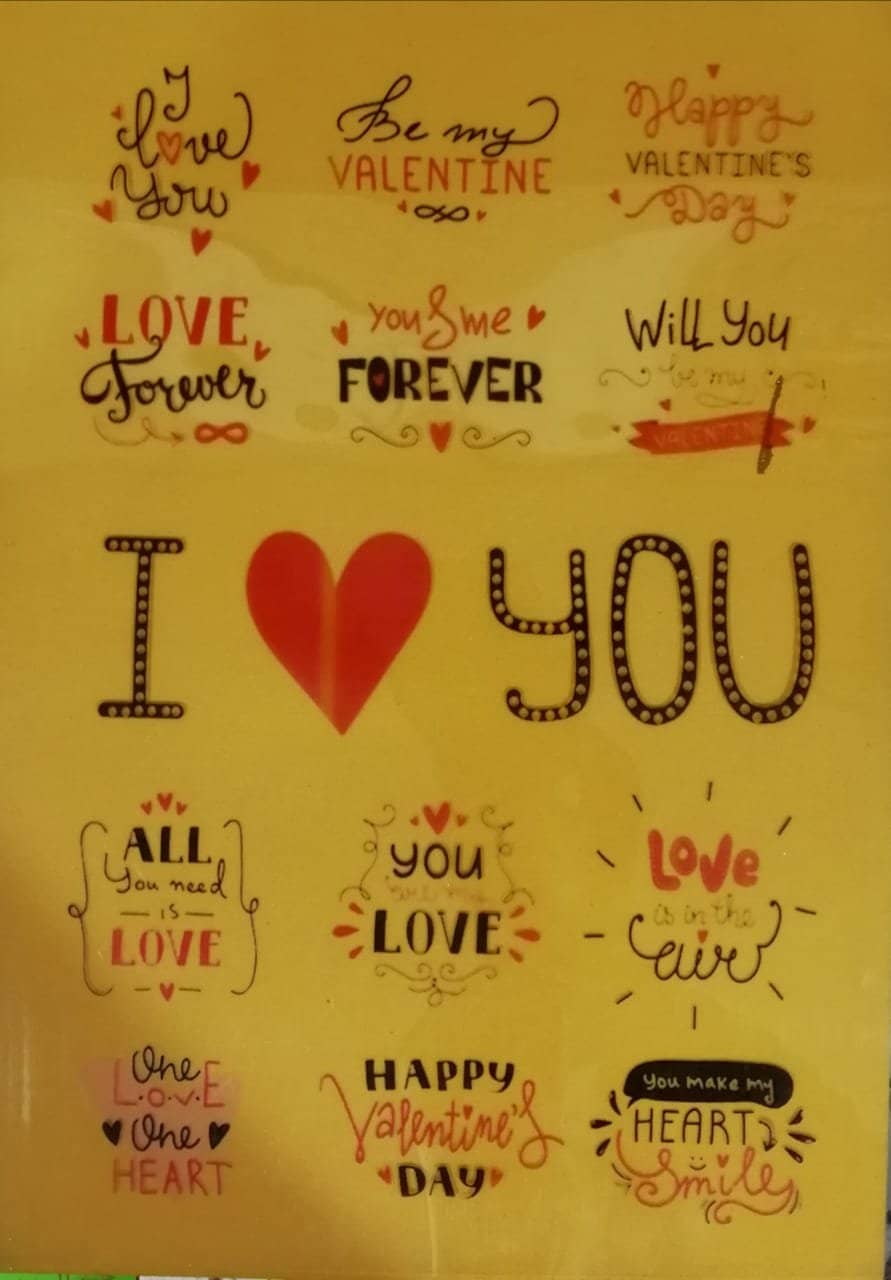 I
love
You
Be my
VALENTINE
Happy
VALENTINE'S
Day
LOVE
Forever
you & me
FOREVER
Will You
be my
VALENTIN
I YOU
ALL
You need
IS
LOVE
YOU
are my
LOVE
Love
is in the
air
One
L.O.V.E
One
HEART
HAPPY
Valentine's
DAY
you make my
HEART
Smile